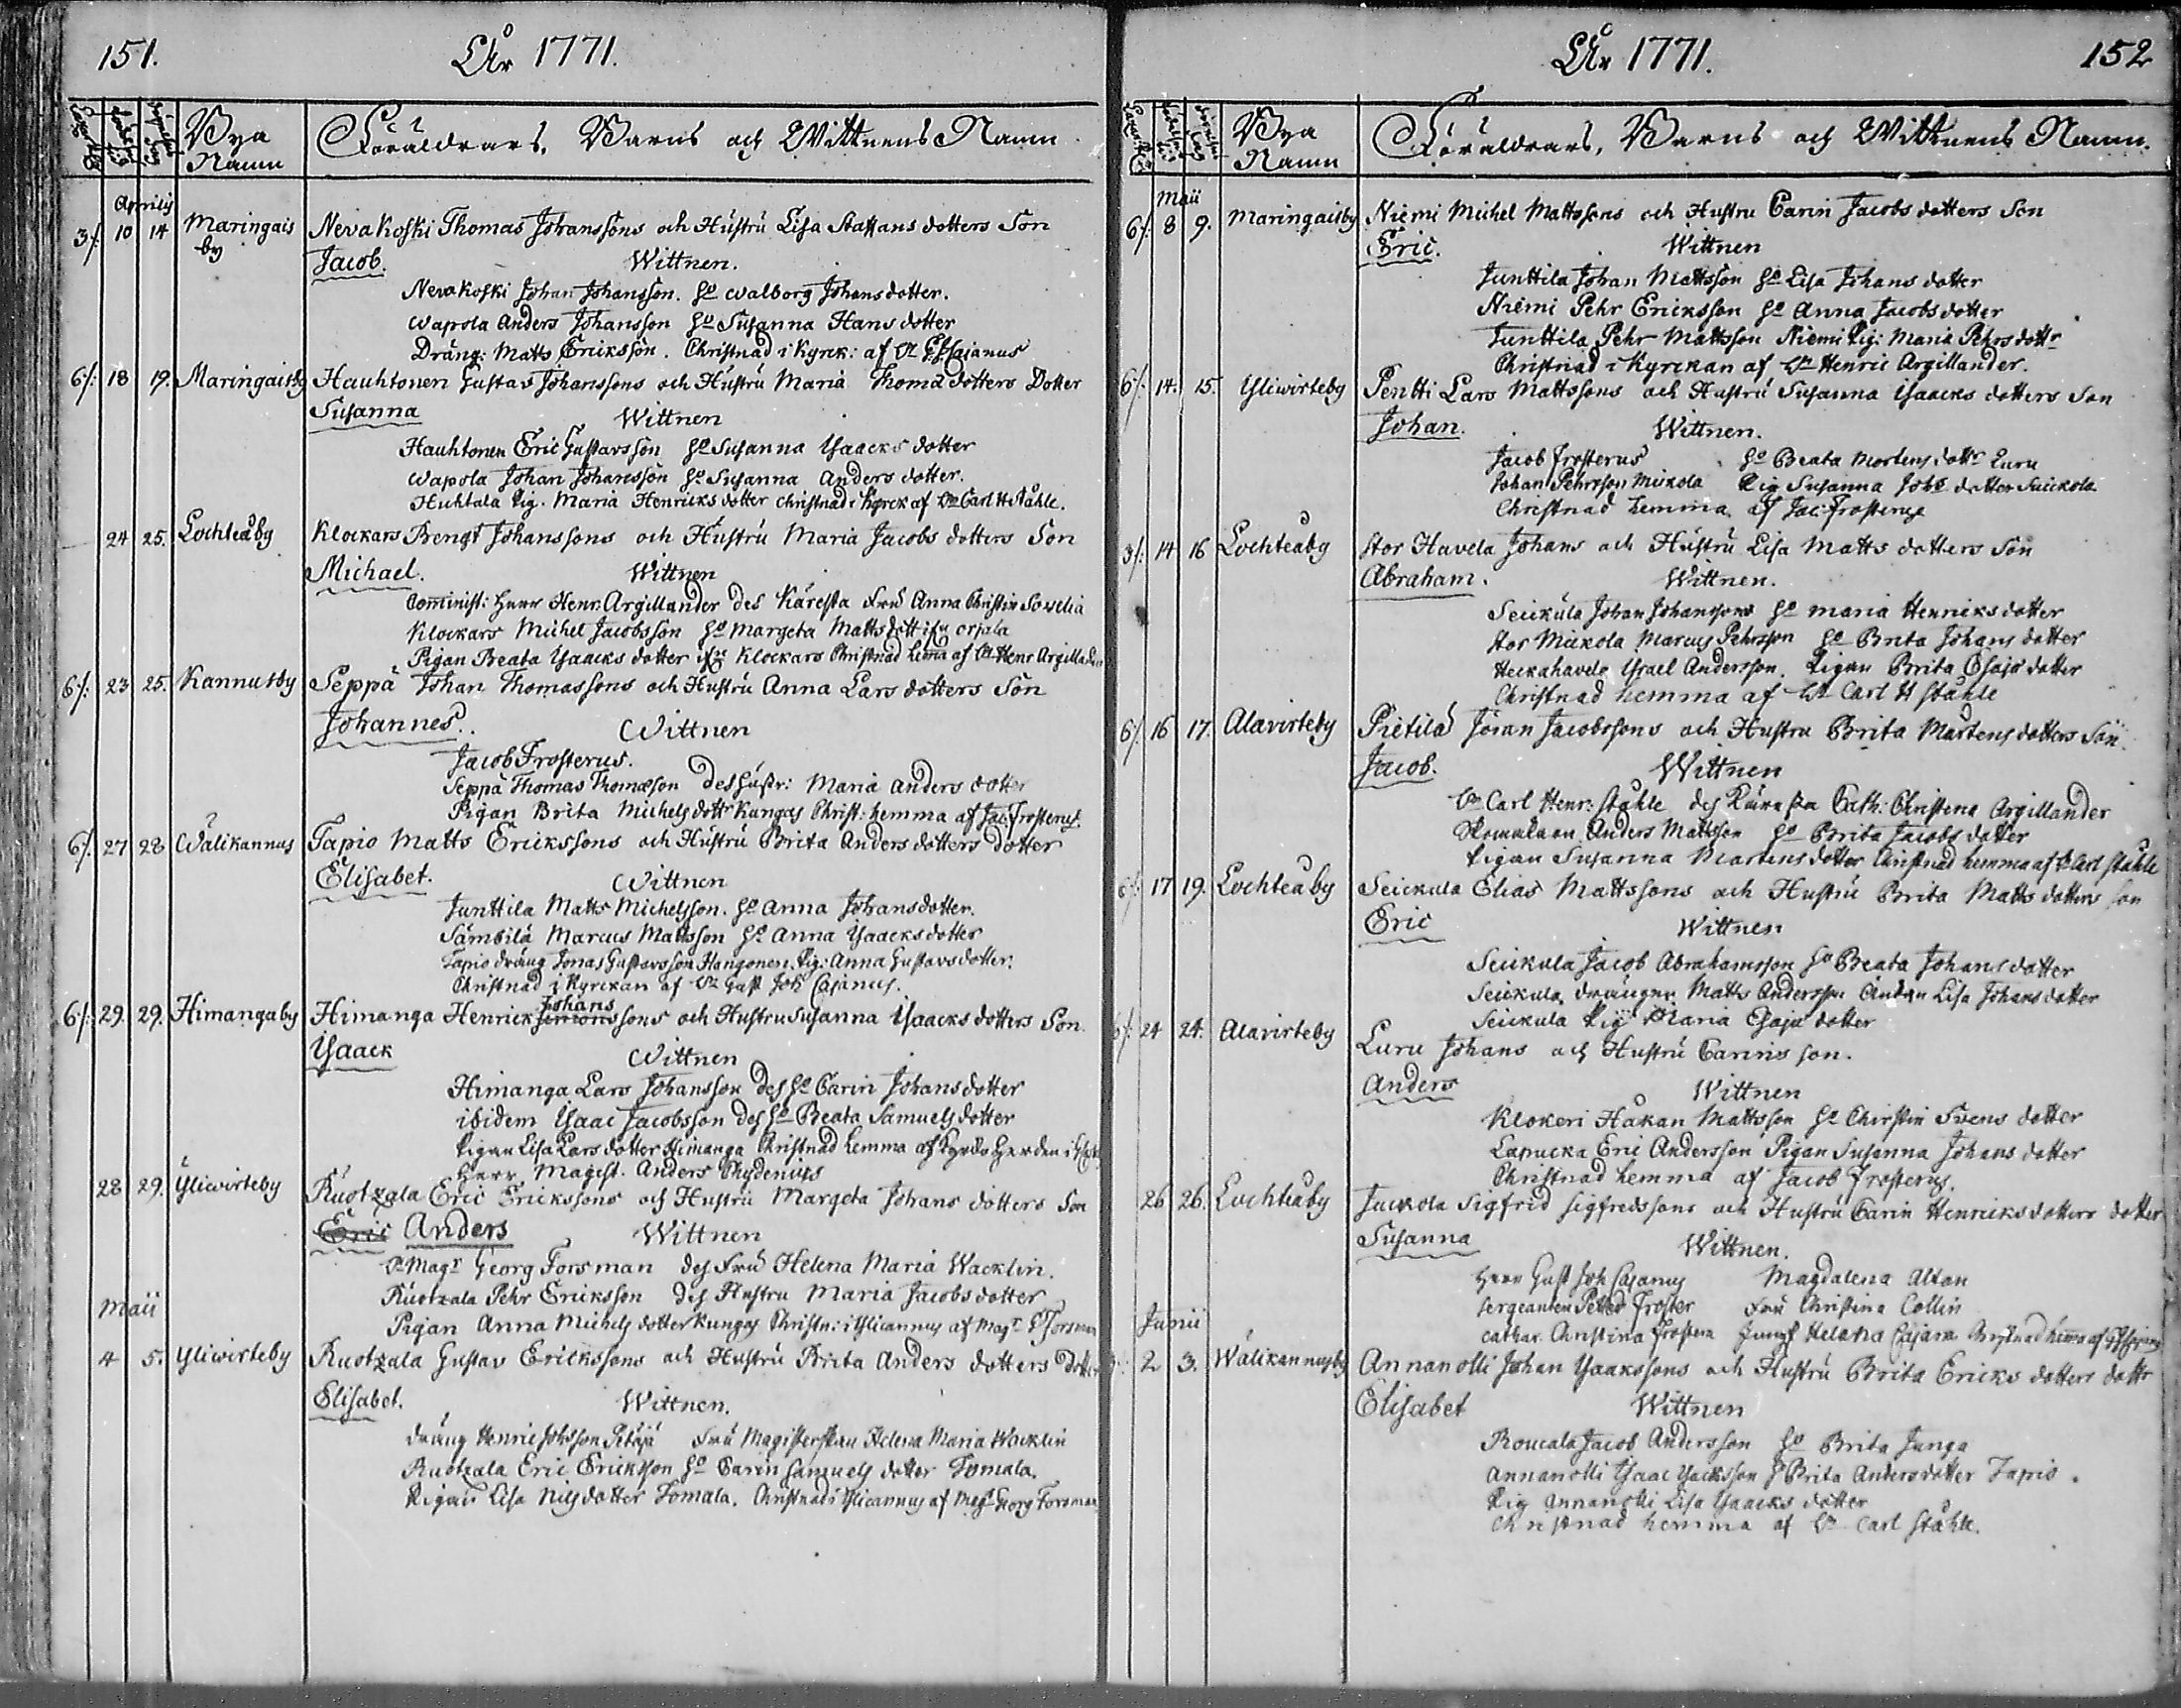 151.
År 1771.
Bya Namn
Föräldrars, Barns och Wittnens Namn
Aprilis
3/. 10 14 Maringais by Nevakoski Thomas Johanssons och Hustru Lisa Staffans dotters Son
Jacob. Wittnen.
Nevakoski Johan Johansson. Ho Walborg Johansdotter.
Wapola Anders Johansson Ho Susanna Hans dotter
Dräng: Matts Ericksson. Christnad i Kyrck: af
6/. 18 19. Maringaisby Hauhtonen Gustav Johanssons och Hustru Maria Thomæ dotters Dotter
Susanna Wittnen
Hauhtonen Eric Gustavsson Ho Susanna Ysaacks dotter
Wapola Johan Johansson Ho Susanna Anders dotter.
Huhtala Pig. Maria Henricks dotter christnad i Kyrck af Carl H Ståhle.
24 25. Lochteåby Klockars Bengt Johanssons och Hustru Maria Jacobs dotters Son
Michael. Wittnen
Comminist: Herr Henr. Argillander des Käresta Fru Anna Christin Sovelia
Klockars Michel Jacobsson Ho Margeta Matts dott
Pigan Beata Ysaacks dotter Klockars Christnad hema af Henr Argillander
6/. 23 25. Kannusby Seppä Johan Thomassons och Hustru Anna Lars dotters Son
Johannes. Wittnen
Jacob Frosterus.
Seppä Thomas Thomasson Des Hustr: Maria Anders dotter
Pigan Brita Michels dottr Kungas Christ: hemma af Jac: Frosterus
6/. 27 28 Wälikannus Tapio Matts Erickssons och Hustru Brita Anders dotters dotter
Elisabet. Wittnen
Junttila Matts Michelsson. Ho Anna Johansdotter.
Sämbilä Marcus Mattsson Ho Anna Ysaacksdotter
Tapio dräng Jonas Gustavsson Hangonen. Pig: Anna Gustavsdotter.
Christnad i Kyrckan af Gust Joh Cajanus.
6/. 29. 29. Himangaby Himanga Henrick Johans Simonssons och Hustru Susanna Isaacks dotters Son
Ysaack Wittnen
Himanga Lars Johansson des Ho Carin Johansdotter
ibidem Ysaac Jacobsson des Ho Beata Samuels dotter
Pigan Lisa Lars dotter Himanga Christnad hemma af
Herr Magist. Anders Chydenius
28 29. Yliwirteby Ruotzala Eric Erickssons och Hustru Margeta Johans dotters Son
Eric Anders Wittnen
Magr Georg Forsman des Fru Helena Maria Wacklin.
Ruotzala Pehr Ericksson des Hustru Maria Jacobsdotter
Pigan Anna Michels dotter Kungas Christn: i Ylicannus af Magr G Forsman
Maii
4 5. Yliwirteby Ruotzala Gustav Erickssons och Hustru Brita Anders dotters Dotter
Elisabet. Wittnen.
Dräng Henric Johsson Pitäjä Fru Magisterskan Helena Maria Wacklin
Ruotzala Eric Ericksson Ho Carin Samuels dotter Tomala.
Pigan Lisa Nilsdotter Tomala. Christnad i Ylicannus af Magr Georg Forsman
År 1771.
152
Bya Namn
Föräldrars, Barns och Wittnens Namn.
Maii
6/. 8 9. Maringaisby Niemi Michel Mattssons och Hustru Carin Jacobs dotters Son
Eric. Wittnen
Junttila Johan Mattsson Ho Lisa Johans dotter
Niemi Pehr Ericksson Ho Anna Jacobs dotter
Junttila Pehr Mattsson Niemi Pig: Maria Pehrsdottr
Christnad i Kyrckan af Henric Argillander.
6/. 14. 15. Yliwirteby Pentti Lars Mattssons och Hustru Susanna Ysaacks dotters Son
Johan. Wittnen.
Jacob Frosterus Ho Beata Mortens dottr Luru
Johan Pehrsson Mickola Pig Susanna Johs dotter Seickola
Christnad hemma af Jac: Frosterus
3/. 14 16 Lochteåby Stor Havela Johans och Hustru Lisa Matts dotters Son
Abraham. Wittnen.
Seickula Johan Johanssons Ho Maria Henricks dotter
Stor Mickola Marcus Pehrsson Ho Brita Johans dotter
Heckahavela Ysrael Andersson. Pigan Brita Esajæ dotter
Christnad hemma af Carl H Ståhle
6/. 16 17. Alavirteby Pietilä Jöran Jacobssons och Hustru Brita Mårtens dotters Son.
Jacob. Wittnen
Carl Henr: Ståhle des Käresta Cath: Christena Argillander
Anders Mattsson Ho Brita Jacobs dotter
Pigan Susanna Martens dotter Christnad hemma af Carl Ståhle
6/. 17 19. Lochteåby Seickula Elias Mattssons och Hustru Brita Matts dotters Son
Eric Wittnen
Seickula Jacob Abrahamsson Ho Beata Johans dotter
Seickula drängen Matts Andersson Lisa Johans dotter
Seickula Pig Maria Esajæ dotter
6/. 24 24. Alavirteby Luru Johans och Hustru Carins son.
Anders Wittnen
Klokeri Håkan Mattsson Ho Chirstin Svens dotter
Lapucka Eric Andersson Pigan Susanna Johans dotter
Christnad hemma af Jacob Frosterus.
26 26. Lochteåby Juckola Sigfrid Sigfredssons och Hustru Carin Henricksdotters dotter
Susanna Wittnen.
Herr Gust Joh Cajanus Magdalena Altan
Sergeanten Petter Froster Fru Christina Collin
Cathar. Christina Frostera Jungf Helena Cajana
Junii
2 3. Wälikannusby Annanolli Johan Ysaakssons och Hustru Brita Ericks dotters dottr
Elisabet Wittnen
Roucala Jacob Andersson Ho Brita Junga
Annanolli Ysaac Ysacksson Ho Brita Andersdotter Tapio.
Pig Annanolli Lisa Ysaacks dotter
Christnad hemma af Carl Ståhle.